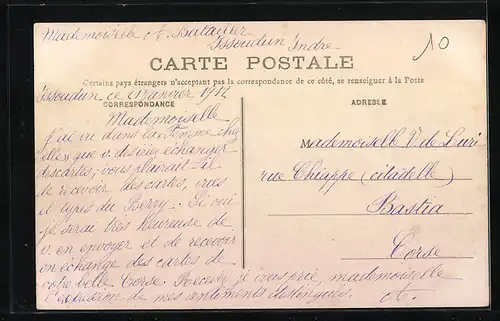 Mademoiselle A. Bataillier
Issoudun Indre
10
CARTE POSTALE
Certains pays étrangers n'acceptant pas la correspondance de ce côté, se renseigner à la Poste
Issoudun ce janvier 1912
CORRESPONDANCE
ADRESSE
Mademoiselle
J'ai vu dans la Femme chez
elle que v. désirez échanger
des cartes, vous plairait-il
de recevoir des cartes, vues
et types du Berry. Si oui
je serai très heureuse de
v. en envoyer et de recevoir
en échange des cartes de
votre belle Corse. Recevez je vous prie, mademoiselle
l'expression de mes sentiments distingués.
A.
Mademoiselle V. de Luri
rue Chiappe (citadelle)
Bastia
Corse